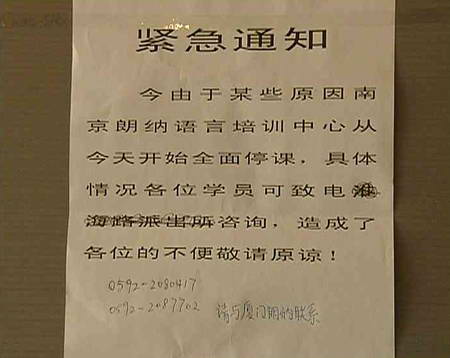 紧急通知
今由于某些原因南
京朗纳语言培训中心从
今天开始全面停课，具体
情况各位学员可致电淮
海路派出所咨询，造成了
各位的不便敬请原谅！
0592-2080417
0592-2087702 请与厦门朗纳联系